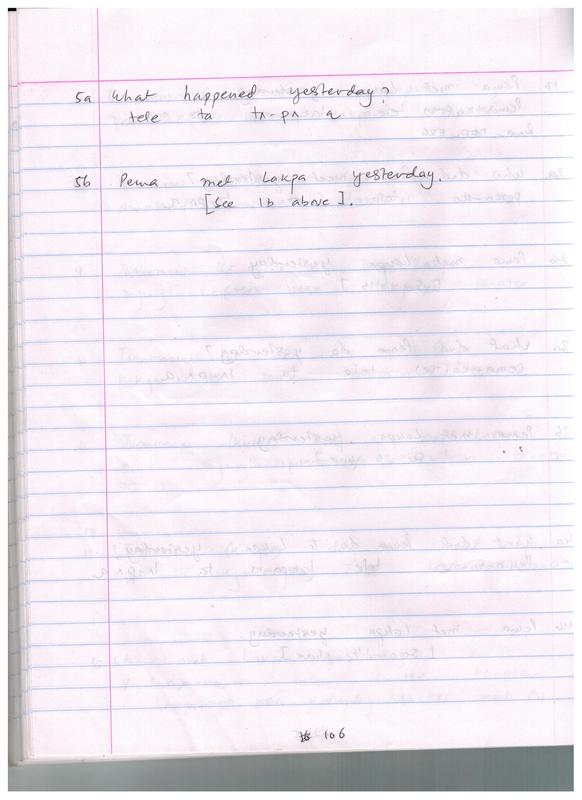 5a What happened yesterday?
tele ta tʌ-pʌ a
5b Pema met Lakpa yesterday.
[See 1b above].
106